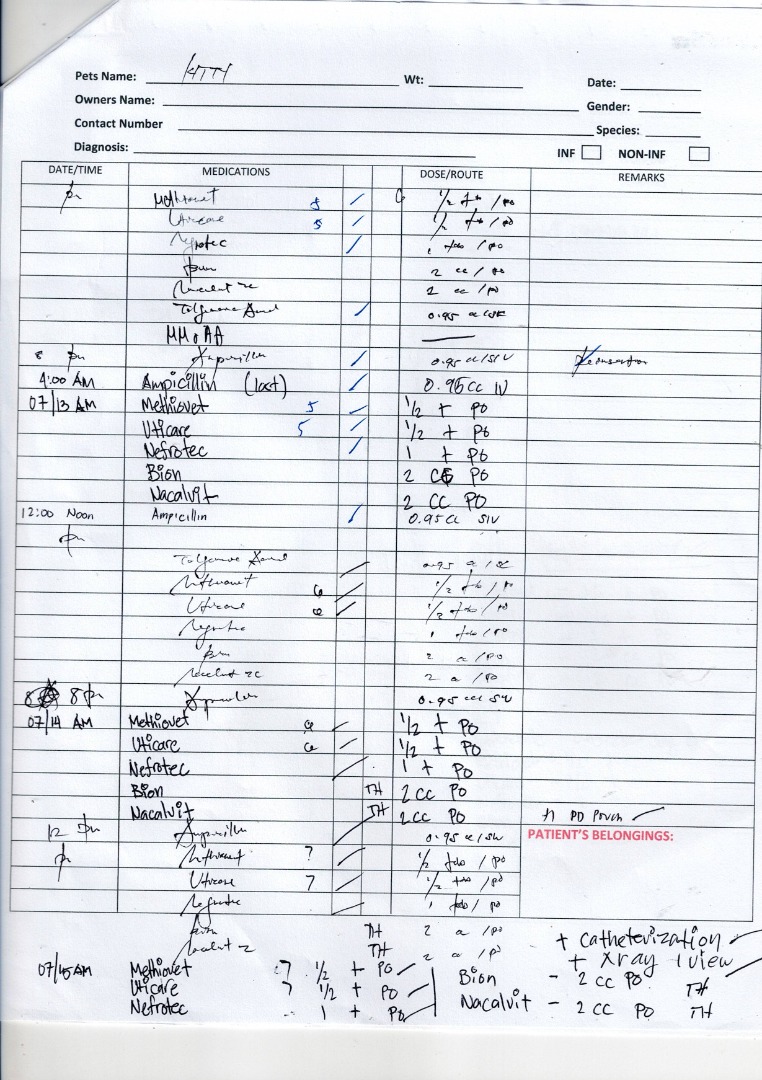 Pets Name: KITTY Wt: Date:
Owners Name: Gender:
Contact Number Species:
Diagnosis: INF NON-INF
DATE/TIME MEDICATIONS DOSE/ROUTE REMARKS
pm Methiovet 5 1/2 tab / po
Uticare 5 1/2 tab / po
Nefrotec 1 tab / po
Bion 2 cc / po
Nacalvit 2 cc / po
0.95 cc
8 pm Ampicillin 0.95 cc/SIV
4:00 AM Ampicillin (last) 0.95cc IV
07/13 AM Methiovet 5 1/2 t PO
Uticare 5 1/2 t PO
Nefrotec 1 t PO
Bion 2 CC PO
Nacalvit 2 CC PO
12:00 Noon Ampicillin 0.95cc SIV
pm
0.95 cc / SC
Methiovet 6 1/2 tab / po
Uticare 6 1/2 tab / po
Nefrotec 1 tab / po
Bion 2 cc / PO
2 cc / PO
8 pm Ampicillin 0.95 cc SIV
07/14 AM Methiovet 6 1/2 t PO
Uticare 6 1/2 t PO
Nefrotec 1 t PO
Bion TH 2 cc PO
Nacalvit TH 2 cc PO PD Pouch
12 pm Ampicillin 0.95 cc/SIV PATIENT'S BELONGINGS:
pm Methiovet ? 1/2 tab / po
Uticare ? 1/2 tab / po
Nefrotec 1 tab / po
Bion TH 2 cc / po + catheterization
TH 2 cc / po + xray 1 view
07/15 AM Methiovet ? 1/2 t PO Bion - 2 cc PO TH
Uticare ? 1/2 t PO Nacalvit - 2 cc PO TH
Nefrotec 1 t PO